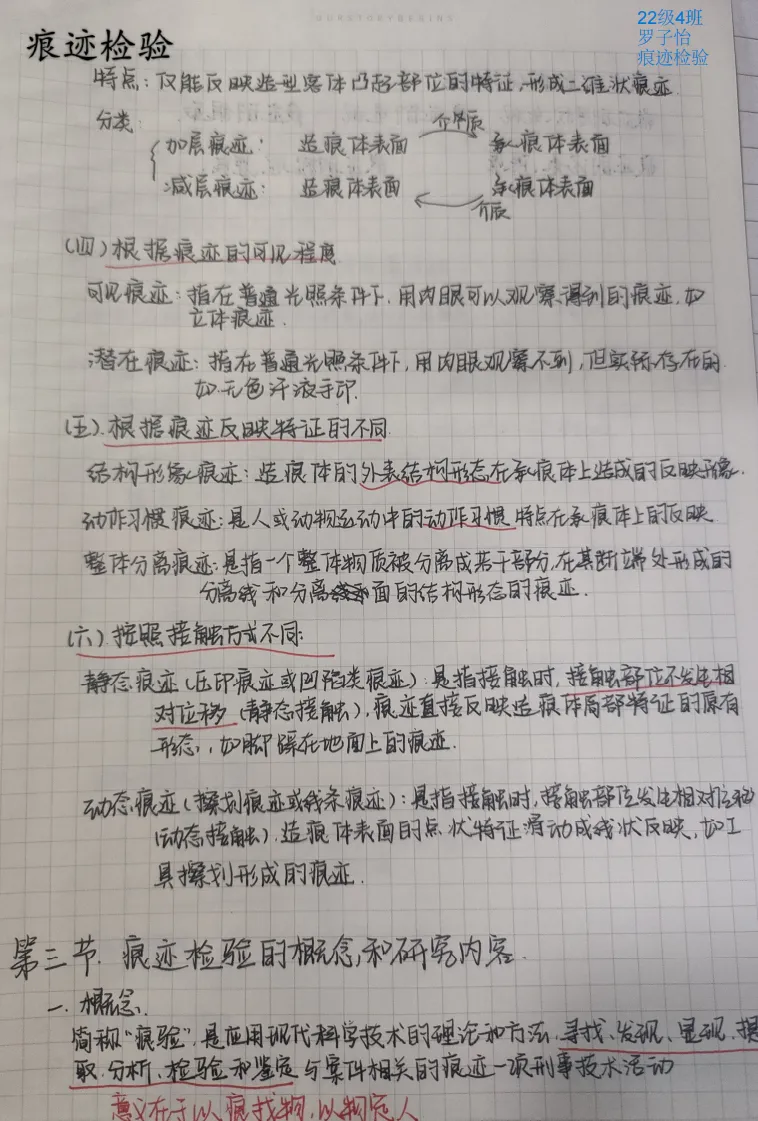 OURSTORYBEGINS
22级4班
罗子怡
痕迹检验
痕迹检验
特点：仅能反映造型客体凸起部位的特征，形成二维状痕迹.
分类
介质
加层痕迹： 造痕体表面 承痕体表面
减层痕迹： 造痕体表面 承痕体表面
介质
(四)根据痕迹的可见程度
可见痕迹：指在普通光照条件下，用肉眼可以观察得到的痕迹，如
立体痕迹.
潜在痕迹：指在普通光照条件下，用肉眼观察不到，但实际存在的.
如无色汗液手印.
(五).根据痕迹反映特征的不同.
结构形象痕迹：造痕体的外表结构形态在承痕体上造成的反映形象.
动作习惯痕迹：是人或动物运动中的动作习惯特点在承痕体上的反映.
整体分离痕迹：是指一个整体物质被分离成若干部分，在其断端处形成的
分离线和分离面的结构形态的痕迹.
(六).按照接触方式不同：
静态痕迹(压印痕迹或凹陷类痕迹)：是指接触时，接触部位不发生相
对位移(静态接触)，痕迹直接反映造痕体局部特征的原有
形态，如脚踩在地面上的痕迹.
动态痕迹(擦划痕迹或线条痕迹)：是指接触时，接触部位发生相对位移
(动态接触)，造痕体表面的点状特征滑动成线状反映，如工
具擦划形成的痕迹.
第三节.痕迹检验的概念和研究内容.
一.概念.
简称“痕验”，是应用现代科学技术的理论和方法，寻找、发现、显现、提
取、分析、检验和鉴定与案件相关的痕迹一项刑事技术活动
意义在于以痕找物，以物定人